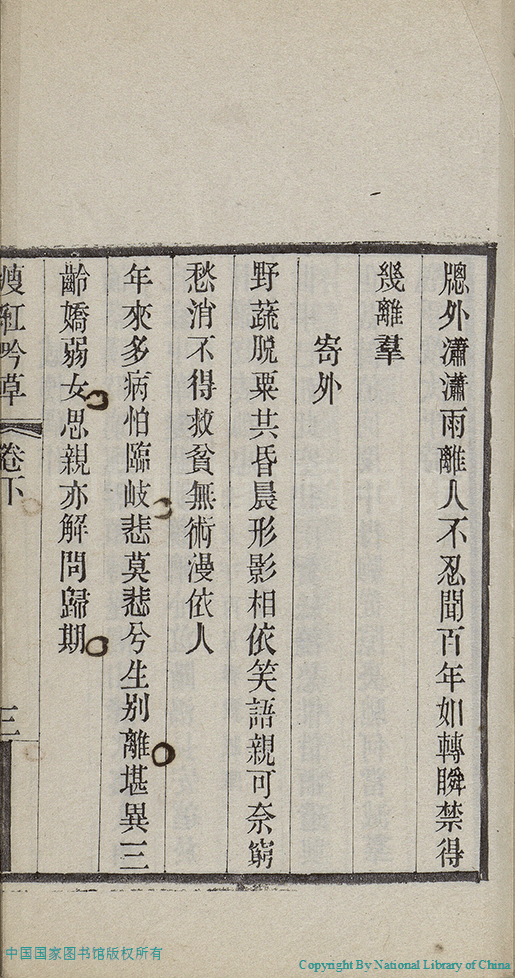 牕外瀟瀟雨離人不忍聞百年如轉瞬禁得
幾離羣
寄外
野蔬脫粟共昏晨形影相依笑語親可奈窮
愁消不得救貧無術漫依人
年來多病怕臨岐悲莫悲兮生别離堪異三
齡嬌弱女思親亦解問歸期
瘦紅吟草
卷下
三
中国国家图书馆版权所有
Copyright By National Library of China